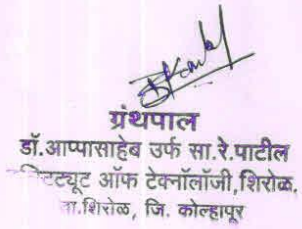 ग्रंथपाल
डॉ.आप्पासाहेब उर्फ सा.रे.पाटील
ऑफ टेक्नॉलॉजी,शिरोळ,
ता.शिरोळ, जि. कोल्हापूर